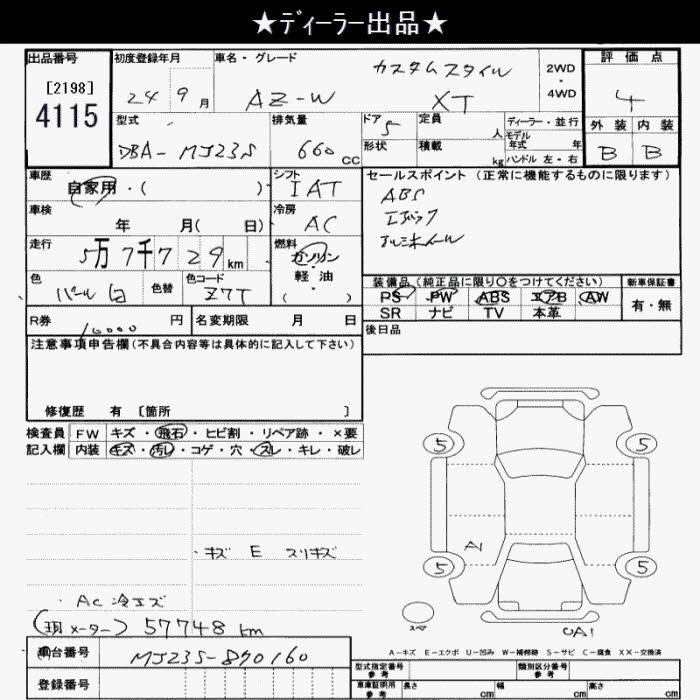 ★ディーラー出品★
出品番号
[2198]
4115
初度登録年月
24 9 月
車名・グレード
カスタムスタイル
AZ-W XT
2WD
・
4WD
評価点
4
外装 内装
B B
型式
DBA-MJ23S
排気量
660 CC
ドア 5
形状
定員
人
積載
kg
ディーラー・並行
モデル
年式 年
ハンドル 左・右
車歴
自家用・( )
シフト
IAT
車検
年 月( 日)
冷房
AC
走行
5万7千729km
燃料
ガソリン
・
軽油
( )
色
パール白
色替
色コード
Z7T
R券
10000 円
名変期限 月 日
セールスポイント(正常に機能するものに限ります)
ABS
エアバック
アルミホイール
装備品(純正品に限り○をつけてください)
PS PW ABS エアB AW
SR ナビ TV 本革
新車保証書
有・無
後日品
注意事項申告欄(不具合内容等は具体的に記入して下さい)
修復歴 有 [箇所 ]
検査員
記入欄
FW キズ・飛石・ヒビ割・リペア跡・×要
内装 キズ・汚れ・コゲ・穴・スレ・キレ・破レ
・キズ E スリキズ
・AC 冷エズ
(現メーター) 57748 km
車台番号 MJ23S-890160
登録番号
5 5
A1
5 5
スペア
A1
A-キズ E-エクボ U-凹み W-補修跡 S-サビ C-腐食 XX-交換済
型式指定番号
参考
類別区分番号
参考
車庫証明用
参考
長さ cm 幅 cm 高さ cm